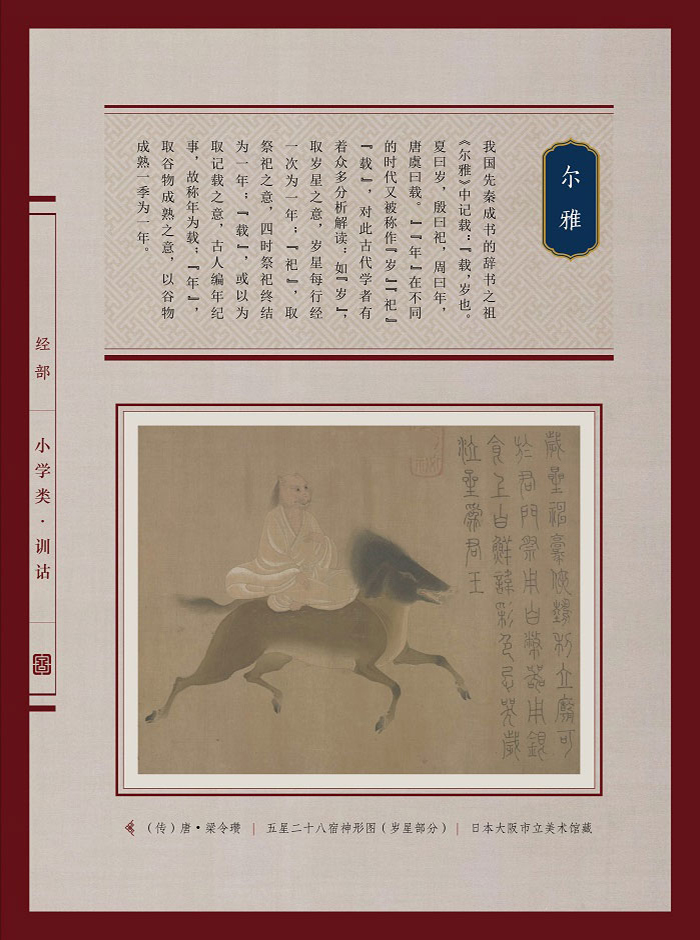 尔雅
我国先秦成书的辞书之祖
《尔雅》中记载：『载，岁也。
夏曰岁，殷曰祀，周曰年，
唐虞曰载。』『年』在不同
的时代又被称作『岁』『祀』
『载』，对此古代学者有
着众多分析解读：如『岁』，
取岁星之意，岁星每行经
一次为一年；『祀』，取
祭祀之意，四时祭祀终结
为一年；『载』，或以为
取记载之意，古人编年纪
事，故称年为载；『年』，
取谷物成熟之意，以谷物
成熟一季为一年。
经部
小学类·训诂
歲星神豪俠勢利立廟可
於君門祭用白幣器用銀
食上白鮮諱彩色忌哭歲
星為君王
（传）唐·梁令瓒 | 五星二十八宿神形图（岁星部分） | 日本大阪市立美术馆藏